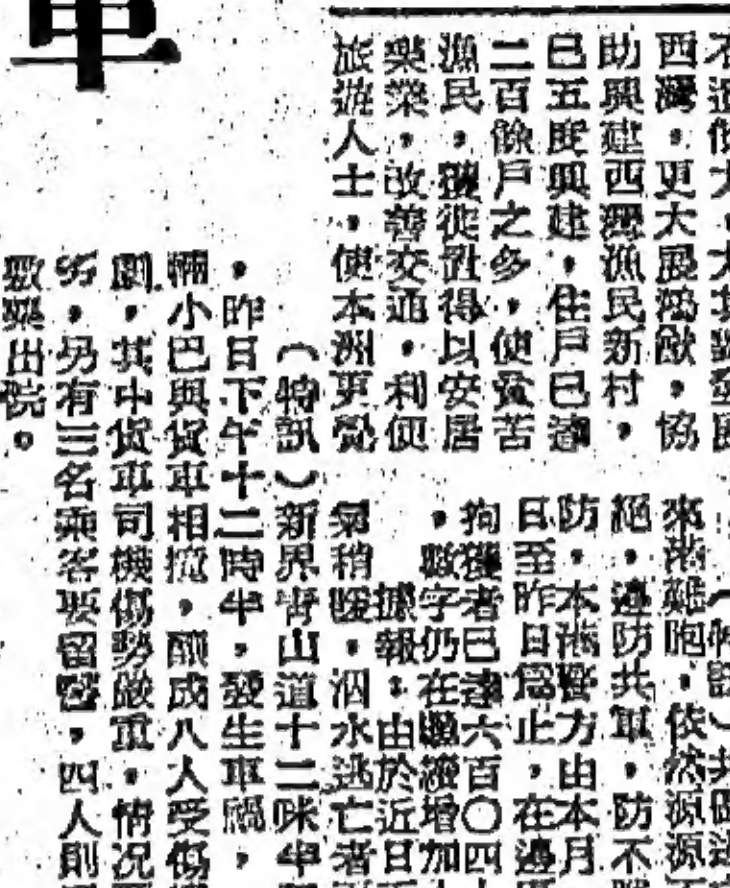 車
西灣，更大展鴻猷，協
助興建西灣漁民新村，
已五度興建，住戶已達
二百餘戶之多，使貧苦
漁民，獲徙置得以安居
樂業，改善交通，利便
旅遊人士，使本洲更覺
來落難胞，依然源源
絕，邊防共軍，防不
防，本港警方由本月
日至昨日為止，在邊
拘獲者已達六百〇四
，數字仍在繼續增加
據報，由於近日
氣稍暖，泅水逃亡者
（特訊）新界青山道十二咪半
，昨日下午十二時半，發生車禍，
輛小巴與貨車相撞，釀成八人受傷
劇，其中貨車司機傷勢嚴重，情况
劣，另有三名乘客要留醫，四人則
敷藥出院。